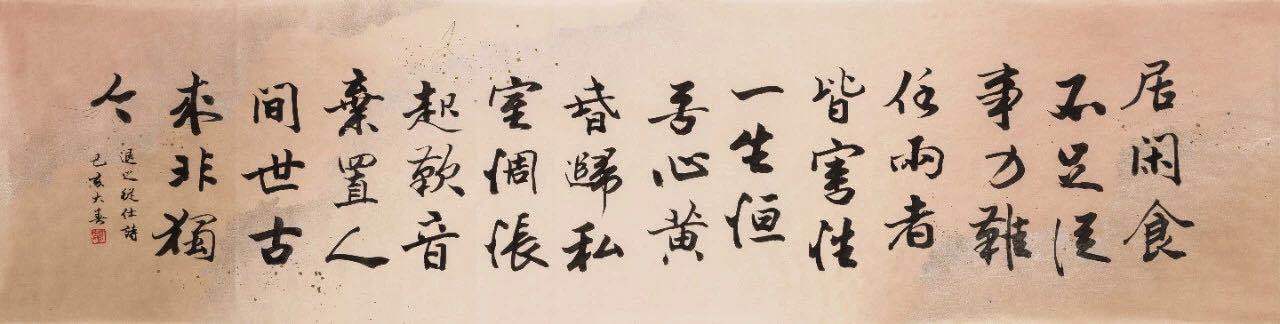 居閑食
不足從
事力難
任兩者
皆害性
一生恒
苦心黃
昏歸私
室惆悵
起歎音
棄置人
間世古
來非獨
今
退之從仕詩
己亥大春